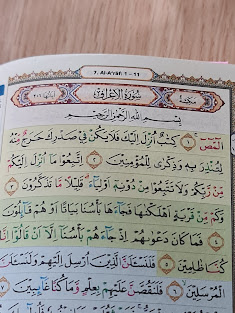 7. Al-A'raf: 1 - 11
سُورَةُ الْأَعْرَافِ
مَكِّيَّة
بِسْمِ اللّٰهِ الرَّحْمٰنِ الرَّحِيْمِ
الۤمّۤصۤ ۝١ كِتٰبٌ اُنْزِلَ اِلَيْكَ فَلَا يَكُنْ فِيْ صَدْرِكَ حَرَجٌ مِّنْهُ
لِتُنْذِرَ بِهٖ وَذِكْرٰى لِلْمُؤْمِنِيْنَ ۝٢ اِتَّبِعُوْا مَآ اُنْزِلَ اِلَيْكُمْ
مِّنْ رَّبِّكُمْ وَلَا تَتَّبِعُوْا مِنْ دُوْنِهٖٓ اَوْلِيَآءَۗ قَلِيْلًا مَّا تَذَكَّرُوْنَ ۝٣
وَكَمْ مِّنْ قَرْيَةٍ اَهْلَكْنٰهَا فَجَآءَهَا بَأْسُنَا بَيَاتًا اَوْ هُمْ قَآئِلُوْنَ
۝٤ فَمَا كَانَ دَعْوٰىهُمْ اِذْ جَآءَهُمْ بَأْسُنَآ اِلَّآ اَنْ قَالُوْٓا اِنَّا
كُنَّا ظٰلِمِيْنَ ۝٥ فَلَنَسْـَٔلَنَّ الَّذِيْنَ اُرْسِلَ اِلَيْهِمْ وَلَنَسْـَٔلَنَّ
الْمُرْسَلِيْنَ ۝٦ فَلَنَقُصَّنَّ عَلَيْهِمْ بِعِلْمٍ وَّمَا كُنَّا غَآئِبِيْنَ ۝٧